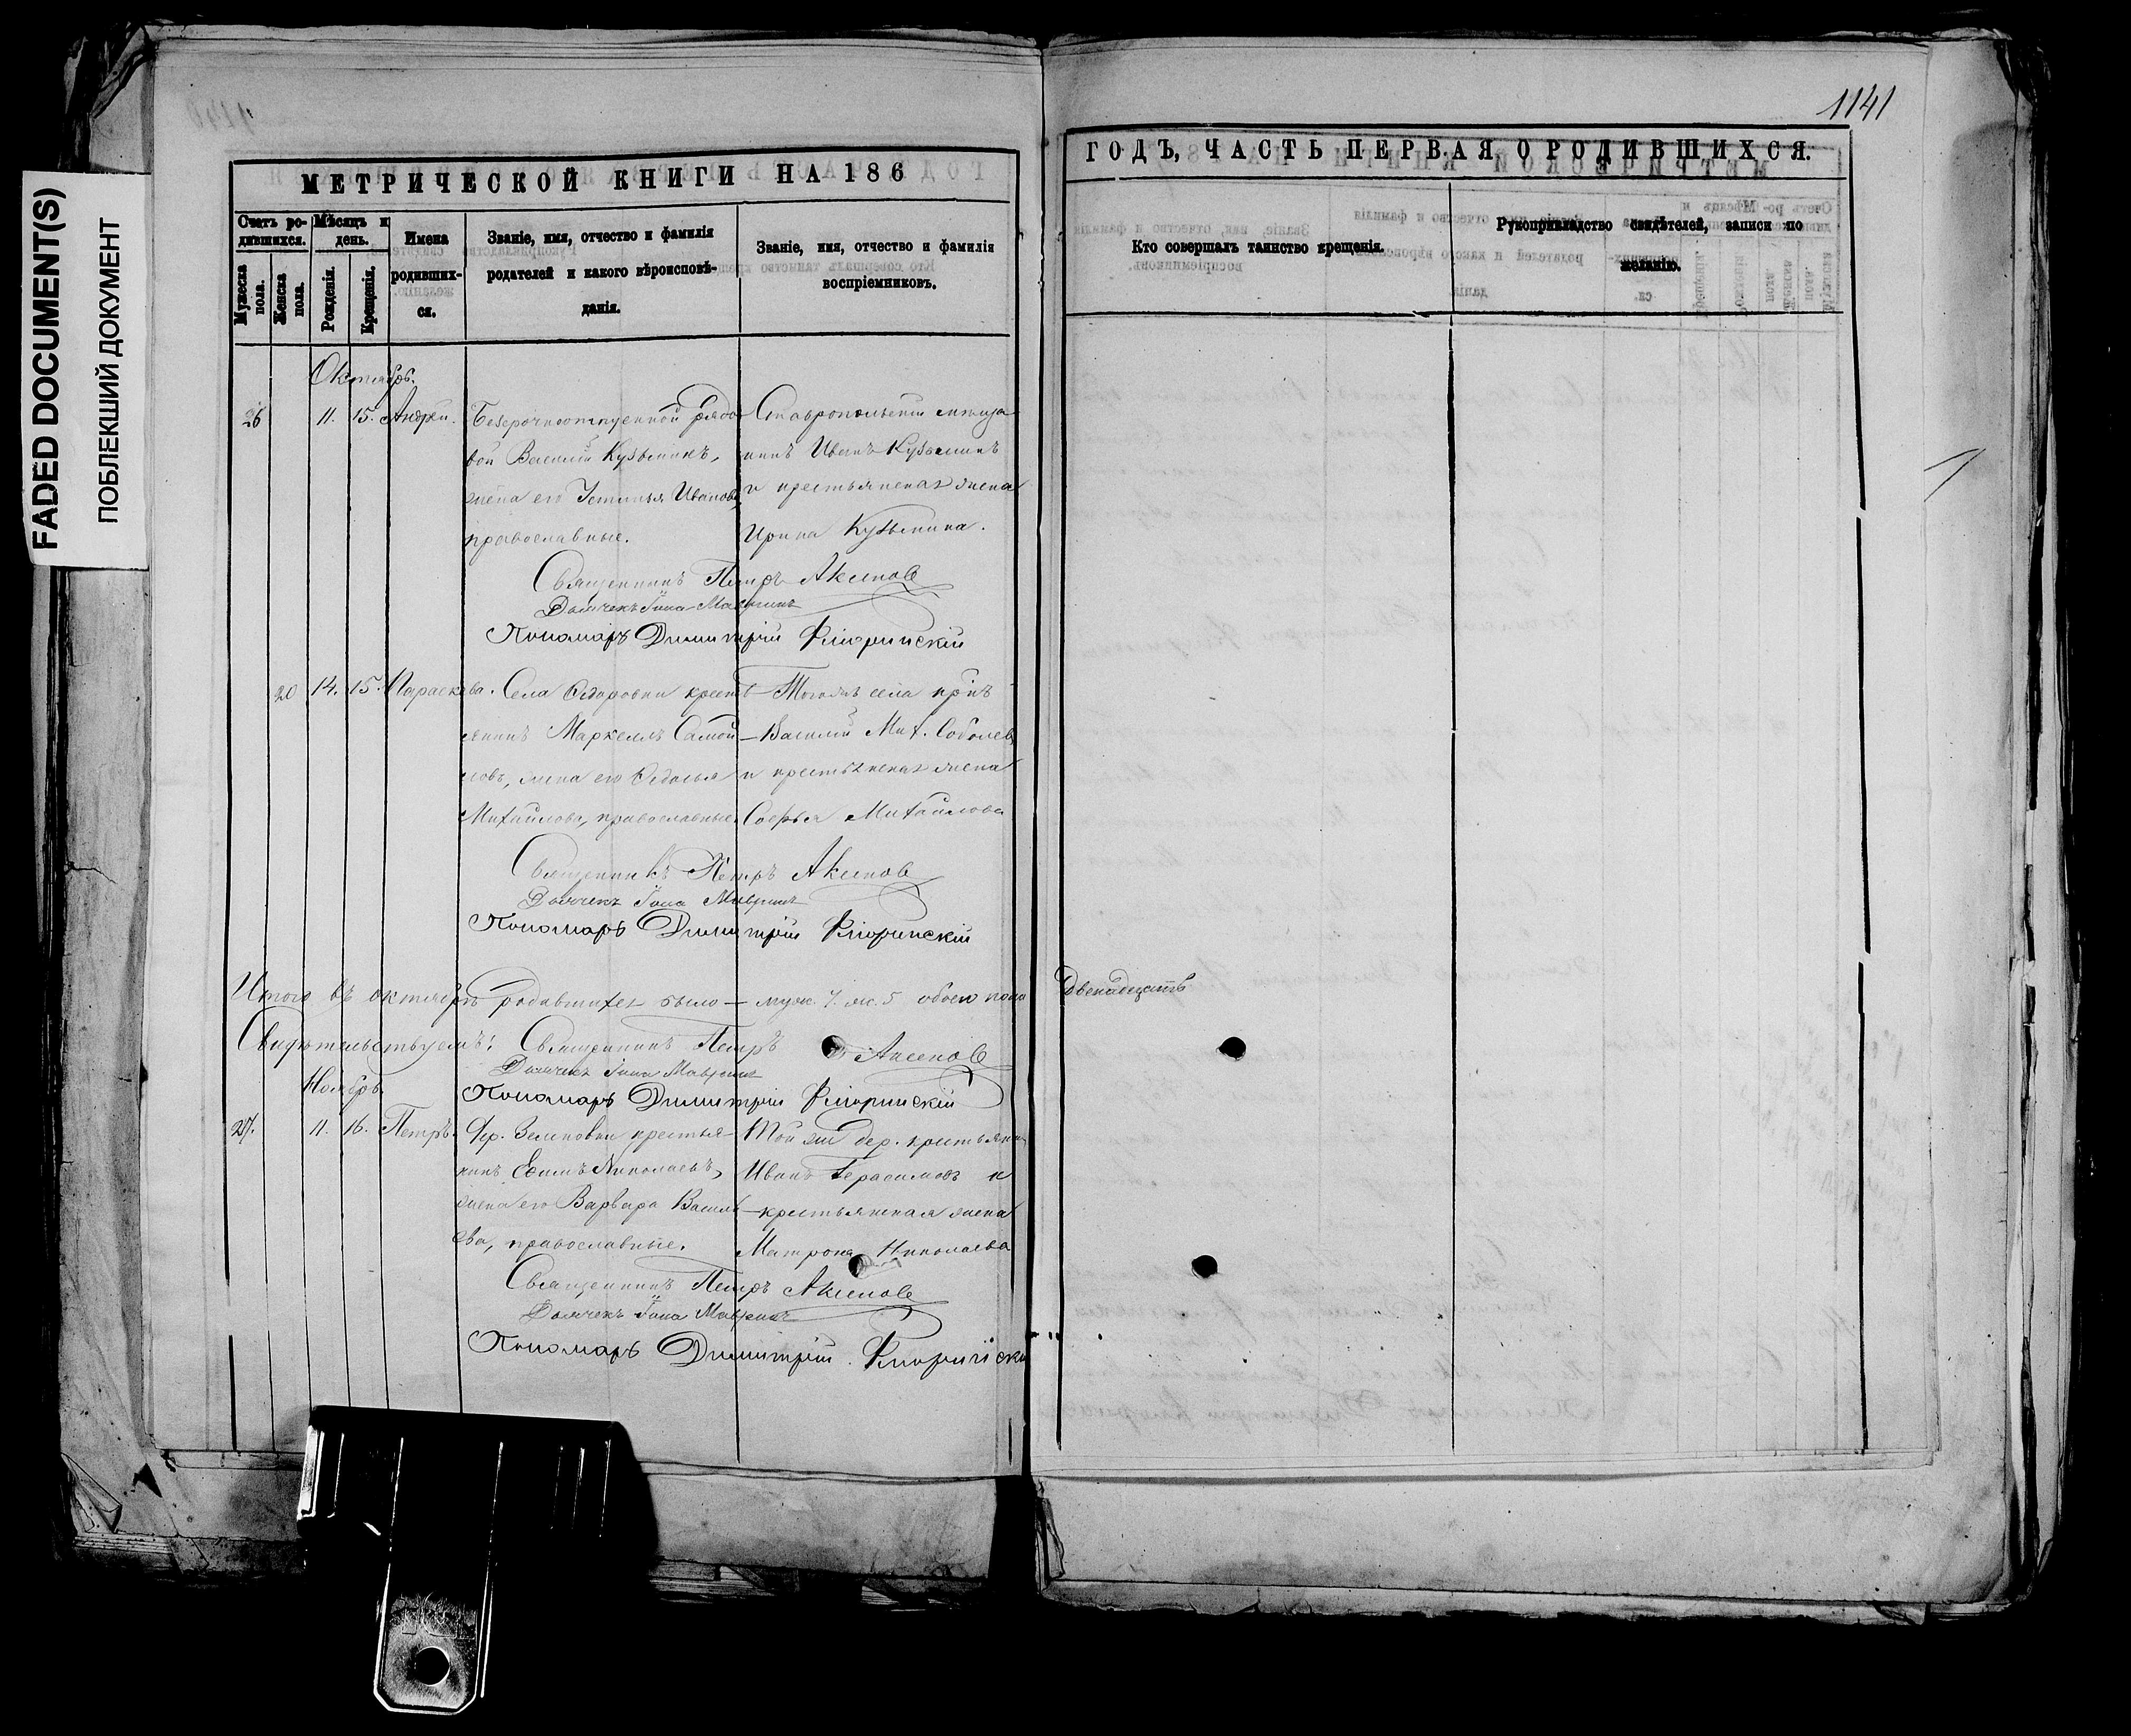 FADED DOCUMENT(S)
ПОБЛЕКШИЙ ДОКУМЕНТ
1141
МЕТРИЧЕСКОЙ КНИГИ НА 186
ГОДЪ, ЧАСТЬ ПЕРВАЯ О РОДИВШИХСЯ.
Счетъ ро-
дившихся.
Мужеска пола.
Женска пола.
Мѣсяцъ и
день.
Рожденія.
Крещенія.
Имена
родивших-
ся.
Званіе, имя, отчество и фамилія
родителей и какого вѣроисповѣ-
данія.
Званіе, имя, отчество и фамилія
воспріемниковъ.
Кто совершалъ таинство крещенія.
Рукоприкладство свидѣтелей, записи по
желанію.
Октябрь.
26 11. 15. Андрей.
Безсрочноотпускной рядо
вой Василій Кузьминъ,
жена его Устинья Иванова,
православные.
Ставропольскій мѣща
нинъ Иванъ Кузьминъ
и крестьянская жена
Ирина Кузьмина.
Священникъ Петръ Аксенов
Дьячекъ Іона Мавринъ
Пономарь Димитрій Флоринскій
20 14. 15. Параскева.
Села Ѳедоровки крестѣ
янинъ Маркеллъ Самой
ловъ, жена его Ѳедосья
Михайлова, православные.
Тогожъ села крнъ
Василій Мих. Соболев
и крестьянская жена
Софья Михайлова
Священникъ Петръ Аксенов
Дьячекъ Іона Мавринъ
Пономарь Димитрій Флоринскій
Итого въ октябрѣ родившихся было – муж. 7. ж. 5 обоего пола двенадцать
Свидѣтельствуемъ: Священникъ Петръ Аксенов
Дьячекъ Іона Мавринъ
Пономарь Димитрій Флоринскій
Ноябрь.
27. 11. 16. Петръ.
Дер. Зеленовки крестья
нинъ Ефимъ Николаевъ,
жена его Варвара Василь
ева, православные.
Той же дер. крестьянин
Иванъ Герасимовъ и
крестьянская жена
Матрона Николаева
Священникъ Петръ Аксенов
Дьячекъ Іона Мавринъ
Пономарь Димитрій Флоринскій